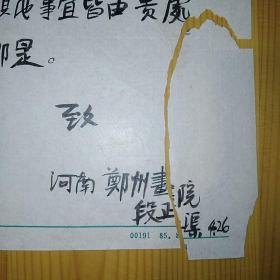 事宜皆由贵處
即是。
致
河南鄭州畫院
段正渠 4.26
00191 85.